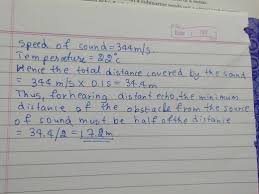 Speed of sound = 344 m/s.
Temperature = 22°C
Hence the total distance covered by the sound
= 344 m/s x 0.1s = 34.4m
Thus, for hearing distant echo, the minimum
distance of the obstacle from the source
of sound must be half of the distance
= 34.4/2 = 17.2m